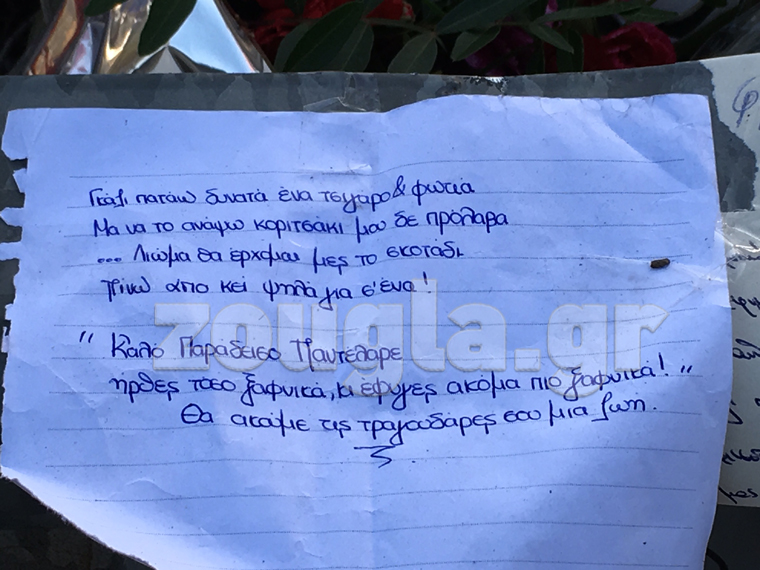 Γκάζι πατάω δυνατά ένα τσιγάρο & φωτιά
Μα να το ανάψω κοριτσάκι μου δε πρόλαβα
... Λιώμα θα έρχομαι μες το σκοτάδι
πίνω από κει ψηλά για σ'ένα!
" Καλό Παράδεισο Παντελάρε
ήρθες τόσο ξαφνικά, κι έφυγες ακόμα πιο ξαφνικά! "
Θα ακούμε τις τραγουδάρες σου μια ζωή.
zougla.gr